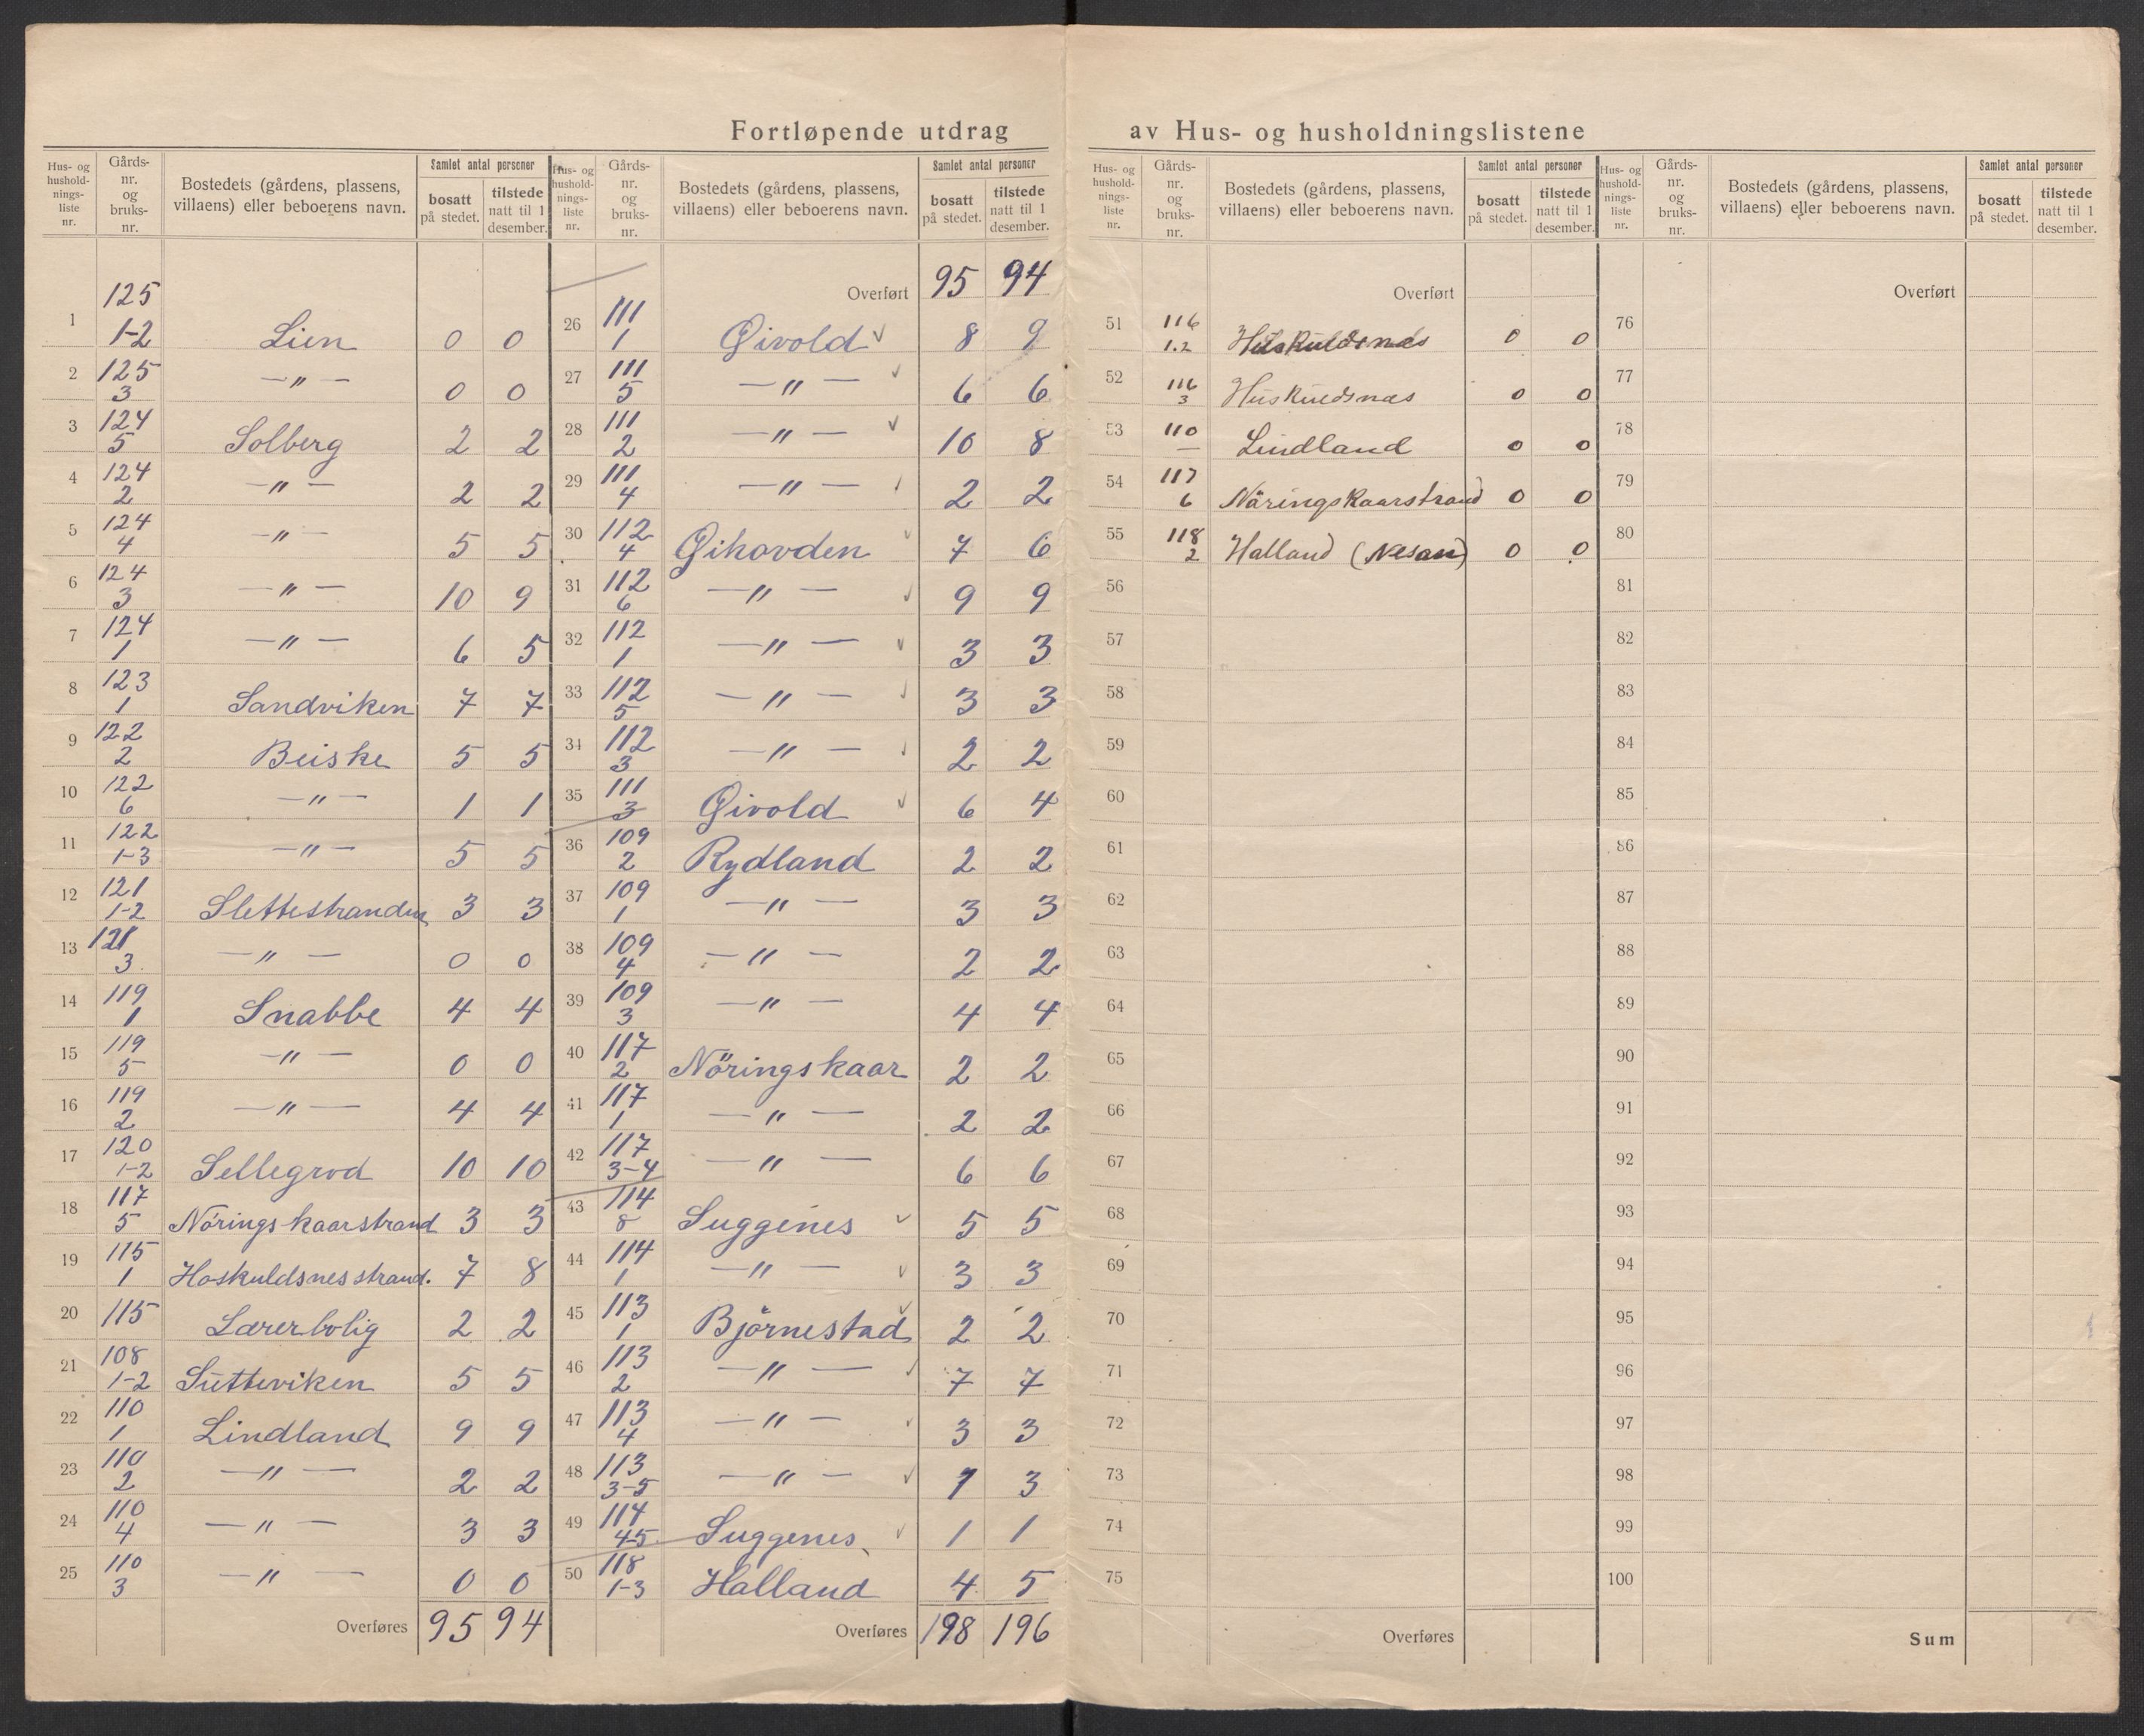 Fortløpende utdrag av Hus- og husholdningslistene
Hus- og husholdnings-liste nr. | Gårds-nr. og bruks-nr. | Bostedets (gårdens, plassens, villaens) eller beboerens navn. | Samlet antal personer | bosatt på stedet. | tilstede natt til 1 desember.
1 125 1-2 Lien 0 0
2 125 3 —"— 0 0
3 124 5 Solberg 2 2
4 124 2 —"— 2 2
5 124 4 —"— 5 5
6 124 3 —"— 10 9
7 124 1 —"— 6 5
8 123 1 Sandviken 7 7
9 122 2 Beiske 5 5
10 122 6 —"— 1 1
11 122 1-3 —"— 5 5
12 121 1-2 Slettestranden 3 3
13 121 3 —"— 0 0
14 119 1 Snabbe 4 4
15 119 5 —"— 0 0
16 119 2 —"— 4 4
17 120 1-2 Sellegrod 10 10
18 117 5 Nöringskaarstrand 3 3
19 115 1 Hoskuldsnesstrand. 7 8
20 115 Lærerbolig 2 2
21 108 1-2 Sütteviken 5 5
22 110 1 Lindland 9 9
23 110 2 —"— 2 2
24 110 4 —"— 3 3
25 110 3 —"— 0 0
Overføres 95 94
Hus- og husholdnings-liste nr. | Gårds-nr. og bruks-nr. | Bostedets (gårdens, plassens, villaens) eller beboerens navn. | Samlet antal personer | bosatt på stedet. | tilstede natt til 1 desember.
Overført 95 94
26 111 1 Øivold ✓ 8 9
27 111 5 —"— ✓ 6 6
28 111 2 —"— ✓ 10 8
29 111 4 —"— ✓ 2 2
30 112 4 Øihovden ✓ 7 6
31 112 6 —"— ✓ 9 9
32 112 1 —"— ✓ 3 3
33 112 5 —"— ✓ 3 3
34 112 3 —"— ✓ 2 2
35 111 3 Øivold ✓ 6 4
36 109 2 Rydland 2 2
37 109 1 —"— 3 3
38 109 4 —"— 2 2
39 109 3 —"— 4 4
40 117 2 Nöringskaar 2 2
41 117 1 —"— 2 2
42 117 3-4 —"— 6 6
43 114 8 Suggenes ✓ 5 5
44 114 1 —"— ✓ 3 3
45 113 1 Björnestad ✓ 2 2
46 113 2 —"— ✓ 7 7
47 113 4 —"— ✓ 3 3
48 113 3-5 —"— ✓ 1 3
49 114 4-5 Suggenes ✓ 1 1
50 118 1-3 Halland 4 5
Overføres 198 196
Hus- og husholdnings-liste nr. | Gårds-nr. og bruks-nr. | Bostedets (gårdens, plassens, villaens) eller beboerens navn. | Samlet antal personer | bosatt på stedet. | tilstede natt til 1 desember.
Overført
51 116 1.2 Huskuldsnæs 0 0
52 116 3 Huskuldsnæs 0 0
53 110 — Lindland 0 0
54 117 6 Nöringskaarstrand 0 0
55 118 2 Halland (Nesan) 0 0
56
57
58
59
60
61
62
63
64
65
66
67
68
69
70
71
72
73
74
75
Overføres
Hus- og husholdnings-liste nr. | Gårds-nr. og bruks-nr. | Bostedets (gårdens, plassens, villaens) eller beboerens navn. | Samlet antal personer | bosatt på stedet. | tilstede natt til 1 desember.
Overført
76
77
78
79
80
81
82
83
84
85
86
87
88
89
90
91
92
93
94
95
96
97
98
99
100
Sum